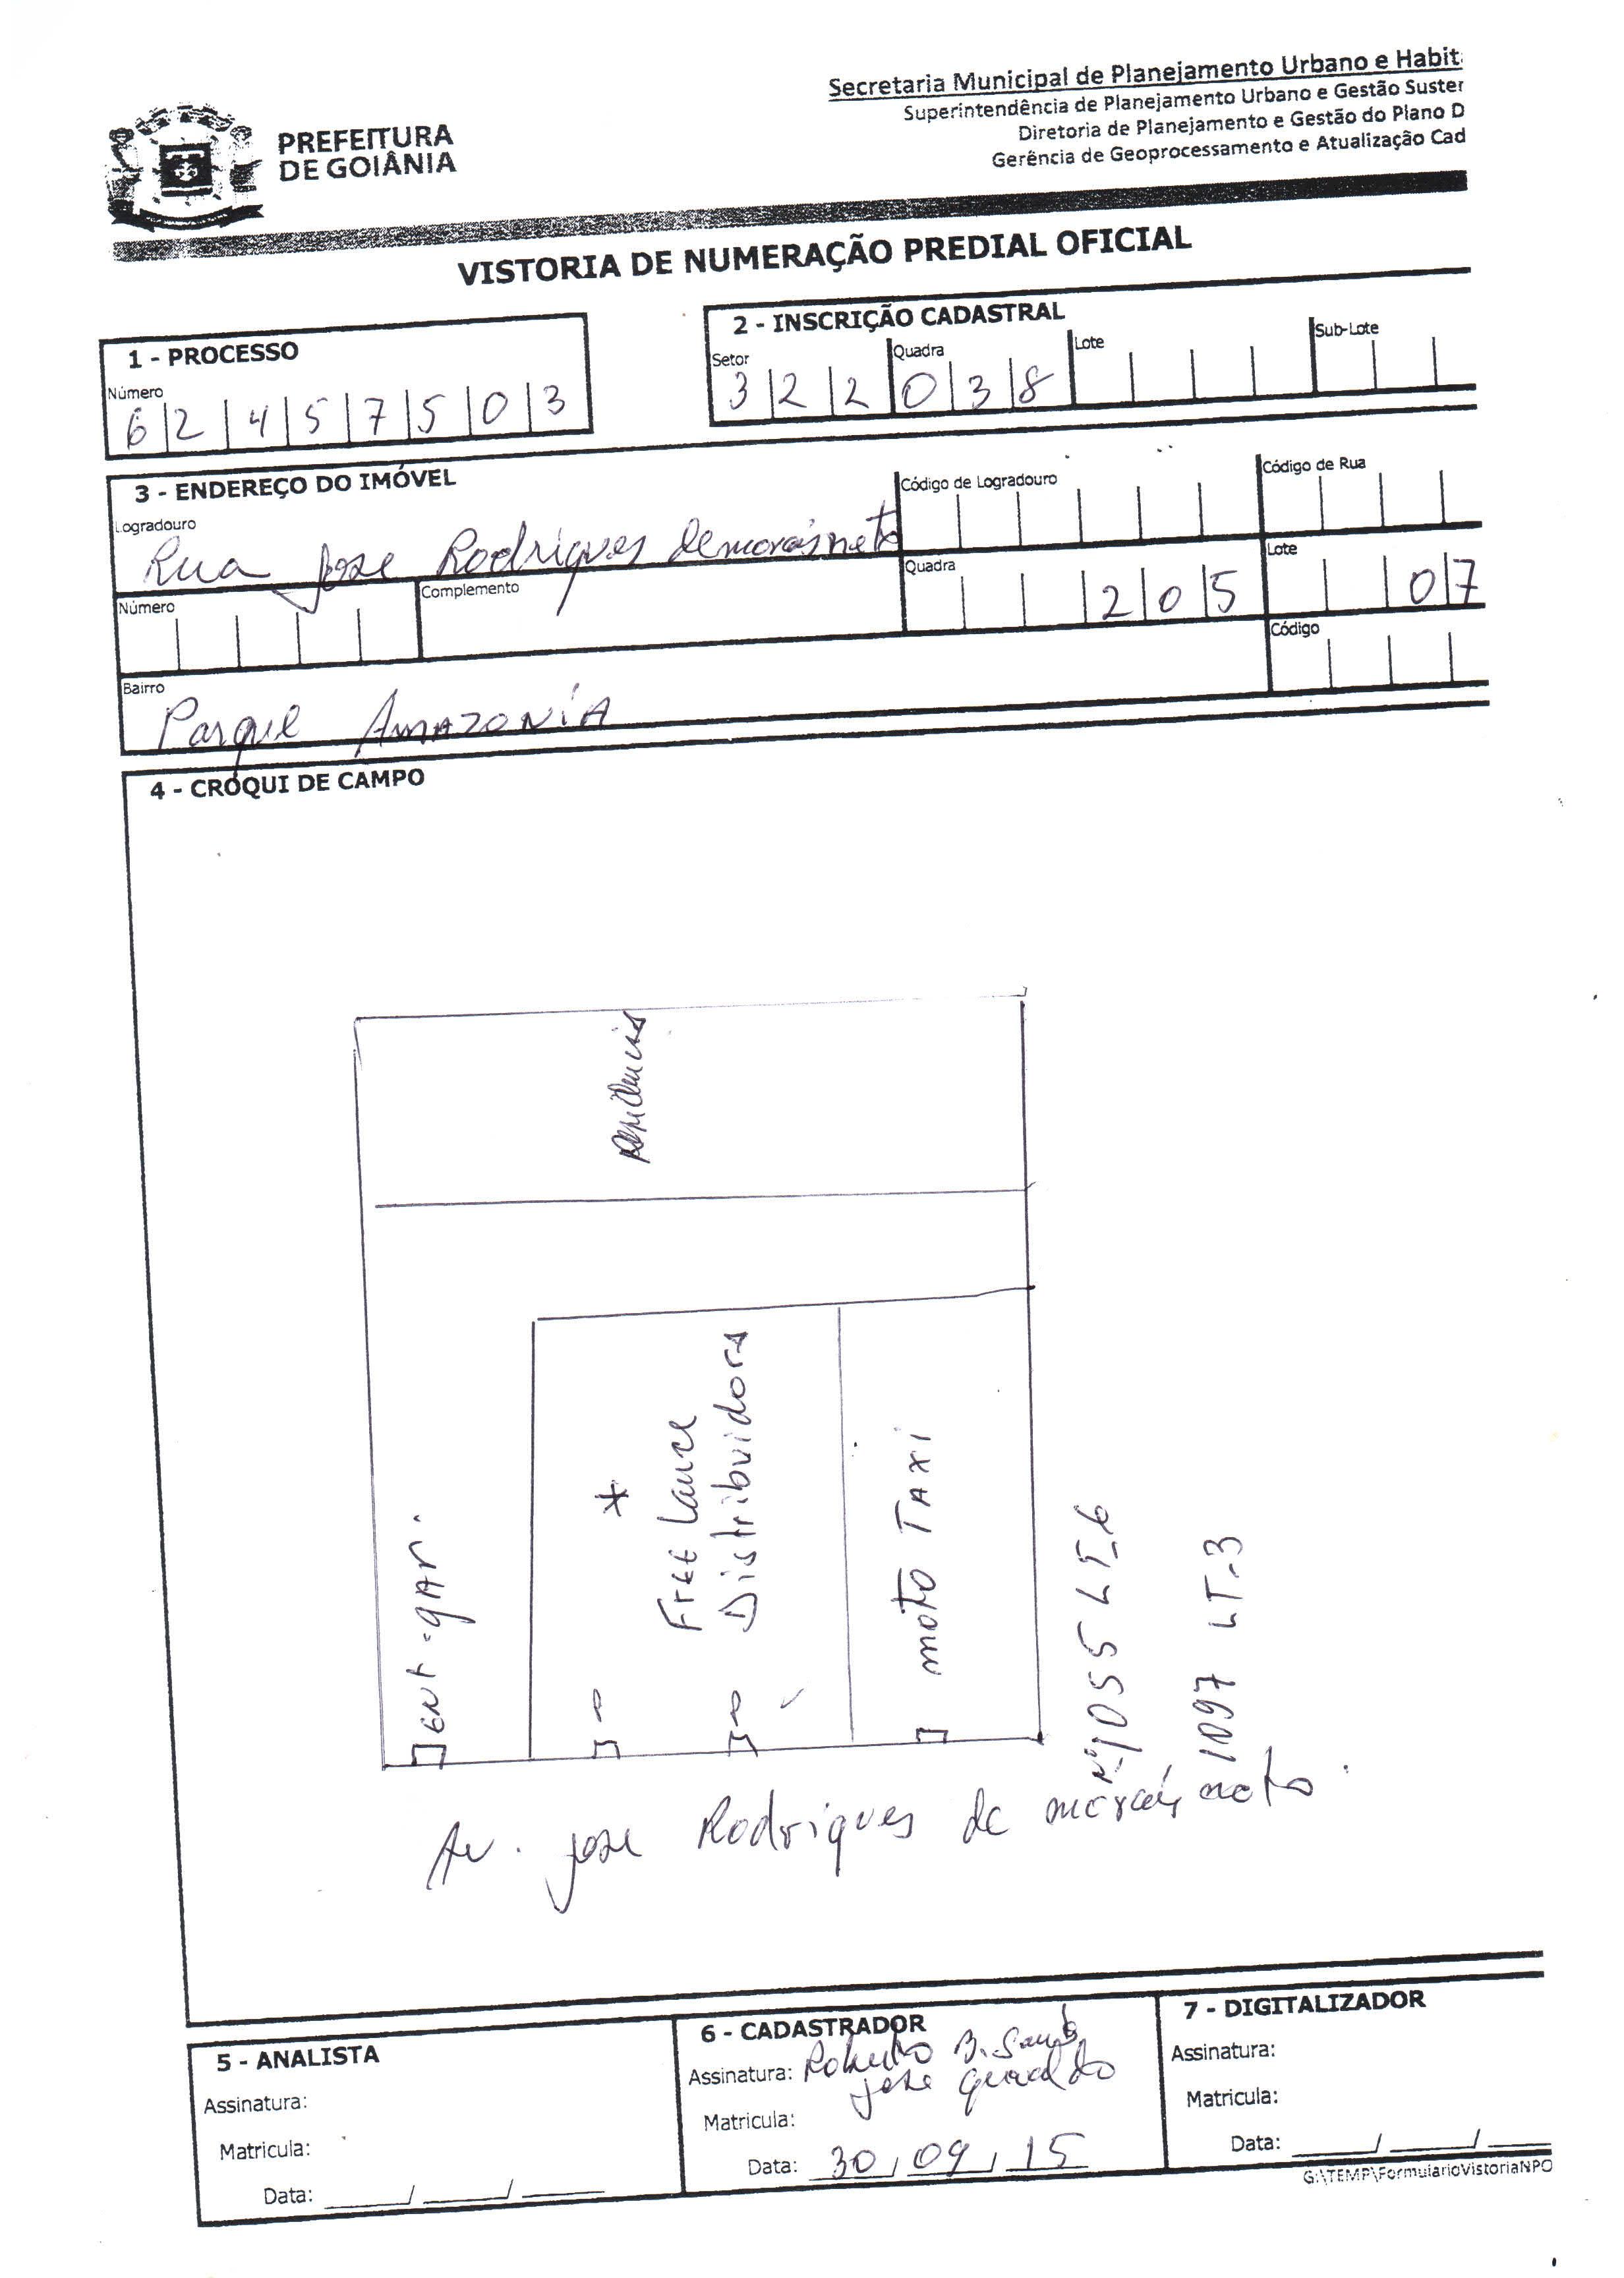 PREFEITURA
DE GOIÂNIA
Secretaria Municipal de Planejamento Urbano e Habit
Superintendência de Planejamento Urbano e Gestão Suster
Diretoria de Planejamento e Gestão do Plano D
Gerência de Geoprocessamento e Atualização Cad
VISTORIA DE NUMERAÇÃO PREDIAL OFICIAL
1 - PROCESSO
Número
6 2 4 5 7 5 0 3
2 - INSCRIÇÃO CADASTRAL
Setor Quadra Lote Sub-Lote
3 2 2 0 3 8
3 - ENDEREÇO DO IMÓVEL
Logradouro Código de Logradouro Código de Rua
Rua Jose Rodrigues de morais neto
Número Complemento Quadra Lote
2 0 5 0 7
Bairro Código
Parque AMAZONIA
4 - CROQUI DE CAMPO
Residencia
ENT. gAr.
*
Free Lance
Distribuidora
moto TAXI
Nº 1055 LT-6
1097 LT-3
Av. jose Rodrigues de morais neto
5 - ANALISTA
Assinatura:
Matricula:
Data: ____/____/____
6 - CADASTRADOR
Assinatura: Roberto B.
jose geraldo
Matricula:
Data: 30/09/15
7 - DIGITALIZADOR
Assinatura:
Matricula:
Data: ____/____/____
G:\TEMP\FormularioVistoriaNPO